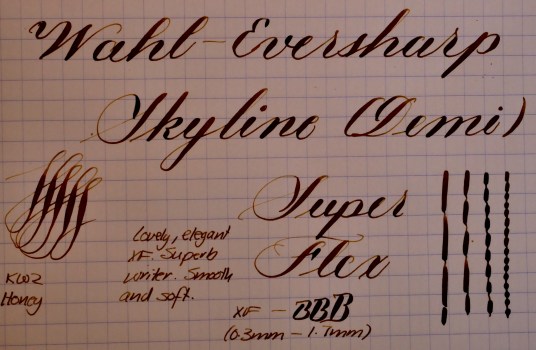 Wahl-Eversharp
Skyline (Demi)
Super
Flex
KWZ
Honey
Lovely, elegant
XF. Superb
writer. Smooth
and soft.
XF - BBB
(0.3mm - 1.7mm)